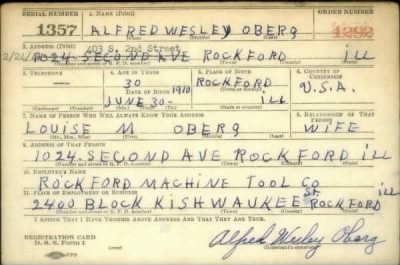 SERIAL NUMBER 1. NAME (Print) ORDER NUMBER
1357 ALFRED WESLEY OBERG
(First) (Middle) (Last)
2. ADDRESS (Print) 403 S. 2nd Street
1024-SECOND AVE ROCKFORD ILL
(Number and street or R. F. D. number) (Town) (County) (State)
3. TELEPHONE 4. AGE IN YEARS 5. PLACE OF BIRTH 6. COUNTRY OF CITIZENSHIP
30 ROCKFORD U.S.A.
DATE OF BIRTH 1910
JUNE 30- ILL
(Exchange) (Number) (Mo.) (Day) (Yr.) (State or country)
7. NAME OF PERSON WHO WILL ALWAYS KNOW YOUR ADDRESS 8. RELATIONSHIP OF THAT PERSON
LOUISE M OBERG WIFE
(Mr., Mrs., Miss) (First) (Middle) (Last)
9. ADDRESS OF THAT PERSON
1024-SECOND AVE ROCKFORD ILL
(Number and street or R. F. D. number) (Town) (County) (State)
10. EMPLOYER'S NAME
ROCKFORD MACHINE TOOL CO
11. PLACE OF EMPLOYMENT OR BUSINESS ST. ILL
2400 BLOCK KISHWAUKEE ROCKFORD
(Number and street or R. F. D. number) (Town) (County) (State)
I AFFIRM THAT I HAVE VERIFIED ABOVE ANSWERS AND THAT THEY ARE TRUE.
REGISTRATION CARD
D. S. S. Form 1
Alfred Wesley Oberg
(Registrant's signature)